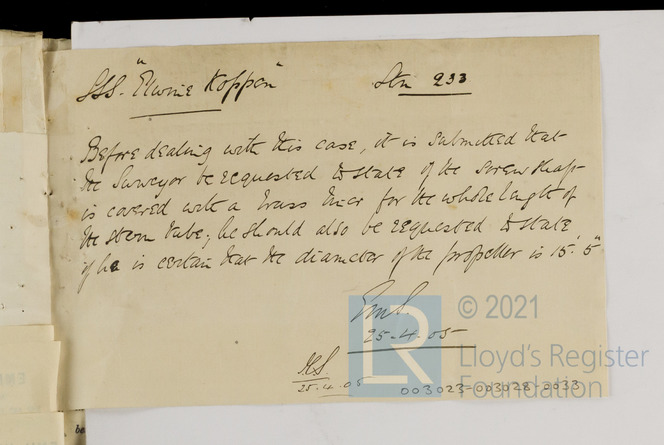 SSS. "Elwine Koppen" Stn 233
Before dealing with this case, it is submitted that
the Surveyor be requested to state if the screw shaft
is covered with a brass liner for the whole length of
the stern tube; he should also be requested to state
if he is certain that the diameter of the propeller is 15'. 5"
25-4-05
25.4.05
003023-003028-0033
© 2021
LR
Lloyd's Register
Foundation